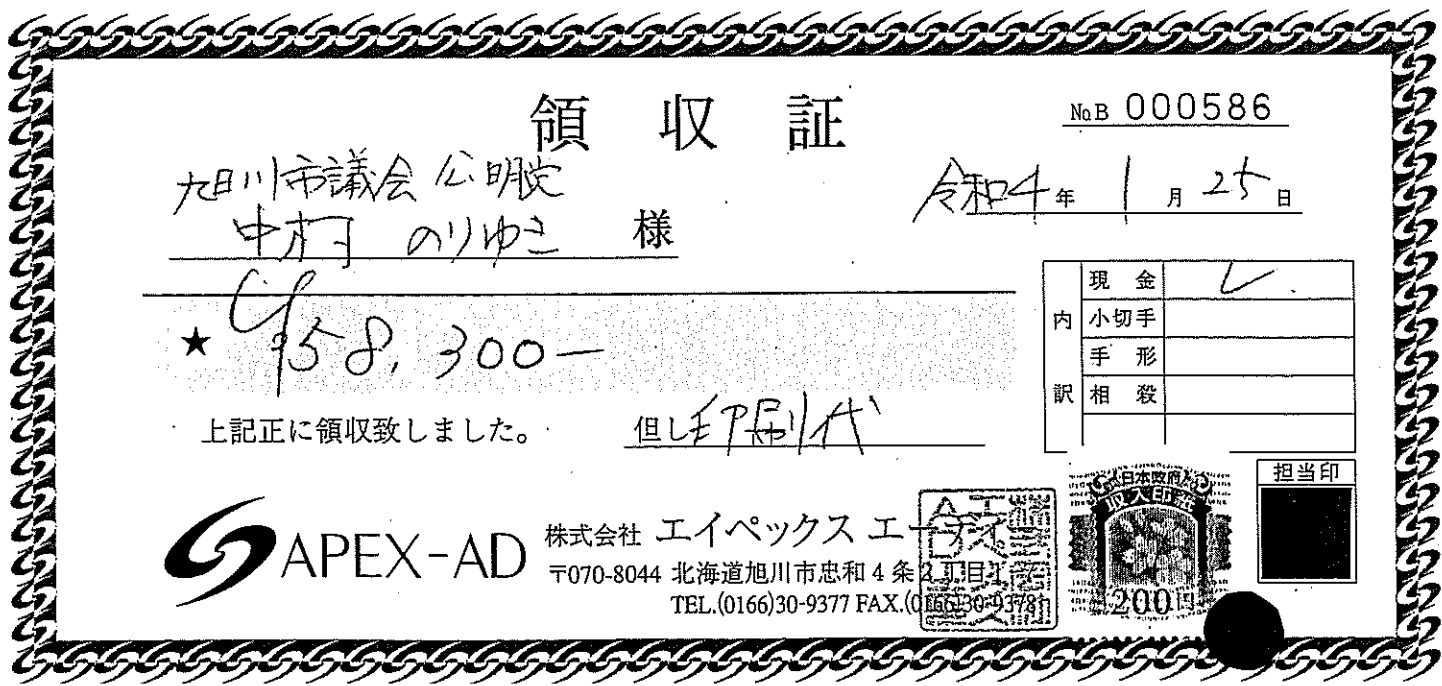 領収証
No.B 000586
旭川市議会 公明党
中村 のりゆき 様
令和4年1月25日
★ ¥58,300ー
上記正に領収致しました。
但し印刷代
内訳
現金 レ
小切手
手形
相殺
担当印
APEX-AD
株式会社 エイペックス エーディー
〒070-8044 北海道旭川市忠和4条2丁目
TEL.(0166)30-9377 FAX.(0166)30-9378
日本政府
収入印紙
200円